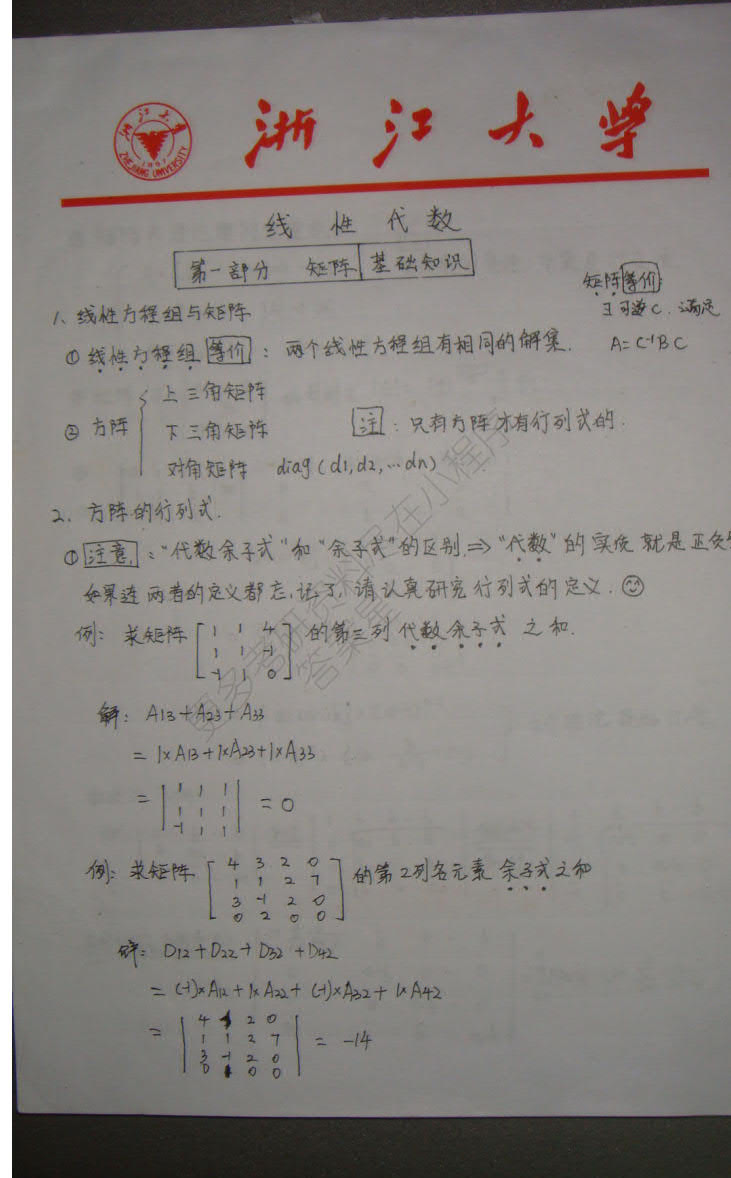 浙江大学
浙江大学
ZHEJIANG UNIVERSITY
1897
线性代数
第一部分 矩阵 基础知识
矩阵等价:
∃可逆C.满足
A=C⁻¹BC
1、线性方程组与矩阵
① 线性方程组 等价 : 两个线性方程组有相同的解集.
② 方阵
上三角矩阵
下三角矩阵
对角矩阵 diag(d1,d2,…dn)
注 : 只有方阵才有行列式的.
2、方阵的行列式.
① 注意 : "代数余子式"和"余子式"的区别.⇒"代数"的实质就是正负
如果连两者的定义都忘记了,请认真研究行列式的定义.
例: 求矩阵 [ 1 1 4
1 1 -1
-1 1 0 ] 的第三列代数余子式之和.
解: A13+A23+A33
= 1×A13+1×A23+1×A33
= | 1 1 1
1 1 1
-1 1 1 | = 0
例: 求矩阵 [ 4 3 2 0
1 1 2 7
3 -1 2 0
0 2 0 0 ] 的第2列各元素余子式之和
解: D12+D22+D32+D42
= (-1)×A12+1×A22+(-1)×A32+1×A42
= | 4 2 0
1 1 2 7
3 -1 2 0
0 0 0 | = -14
更多考研资料尽在小程序
答案星